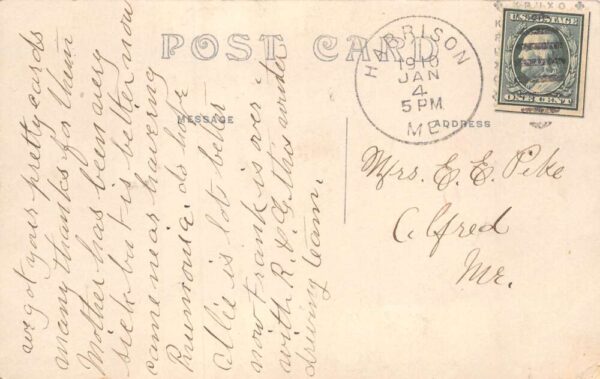 POST CARD
MESSAGE
ADDRESS
HARRISON
1910
JAN
4
5 PM
ME.
U.S. POSTAGE
ONE CENT
Mrs. E. E. Pike
Alfred
Me.
we got your pretty cards
many thanks for them
Mother has been very
sick but is better now
came near haveing
Pnumonia. do hope
Allie is lots better
now Frank is over
with R. & G. this winter
driving team.